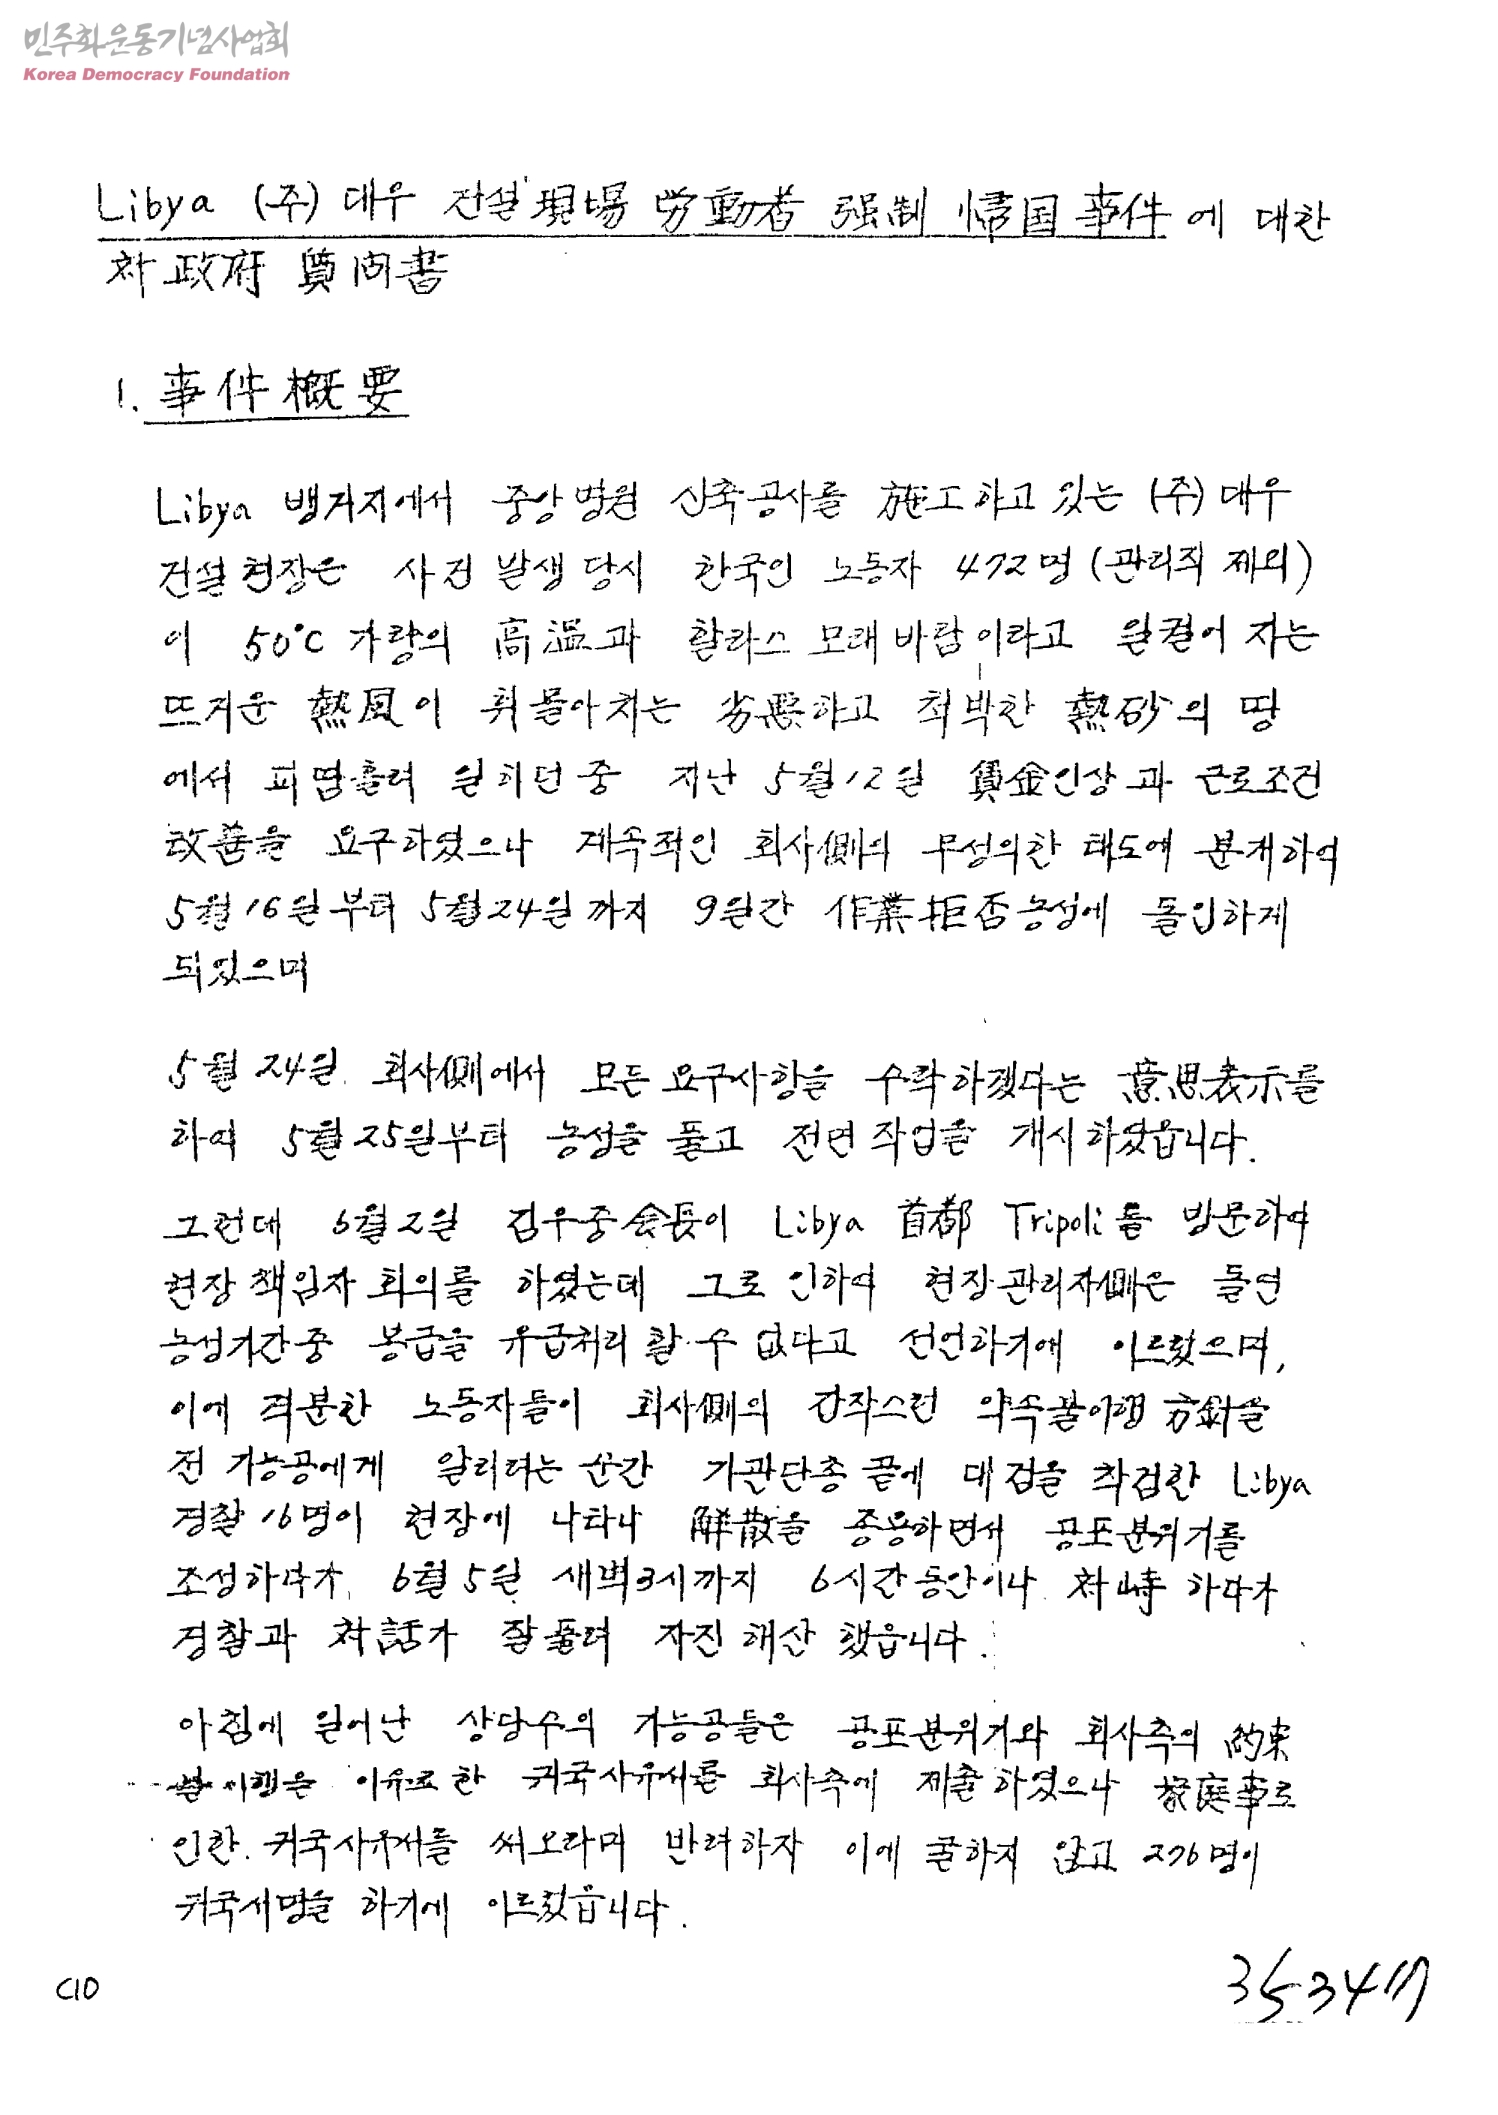 민주화운동기념사업회
Korea Democracy Foundation
Libya (주) 대우 건설現場 労動者 强制 帰国 事件에 대한
対政府 質问書
1. 事件槪要
Libya 뱅가지에서 중앙병원 신축공사를 施工하고 있는 (주)대우
건설현장은 사건 발생 당시 한국인 노동자 472명 (관리직 제외)
이 50°C 가량의 高温과 할라스 모래바람이라고 일컬어 지는
뜨거운 熱風이 휘몰아치는 劣悪하고 척박한 熱砂의 땅
에서 피땀흘려 일하던 중 지난 5월 12일 賃金인상과 근로조건
改善을 요구하였으나 계속적인 회사側의 무성의한 태도에 분개하여
5월 16일부터 5월24일까지 9일간 作業拒否농성에 돌입하게
되었으며
5월 24일. 회사側에서 모든 요구사항을 수락하겠다는 意思表示를
하여 5월25일부터 농성을 풀고 전면작업을 개시하였읍니다.
그런데 6월2일 김우중会長이 Libya 首都 Tripoli를 방문하여
현장책임자 회의를 하였는데 그로 인하여 현장관리자側은 돌연
농성기간중 봉급을 유급처리 할 수 없다고 선언하기에 이르렀으며,
이에 격분한 노동자들이 회사側의 갑작스런 약속불이행 方針을
전 기능공에게 알리려는 순간 기관단총 끝에 대검을 착검한 Libya
경찰 16명이 현장에 나타나 解散을 종용하면서 공포분위기를
조성하다가, 6월 5일 새벽3시까지 6시간동안이나 対峙하다가
경찰과 対話가 잘풀려 자진해산 했읍니다.
아침에 일어난 상당수의 기능공들은 공포분위기와 회사측의 約束
불이행은 이유로한 귀국사유서를 회사측에 제출하였으나 家庭事로
인한. 귀국사유서를 써오라며 반려하자 이에 굴하지 않고 276명이
귀국서명을 하기에 이르렀읍니다.
C10